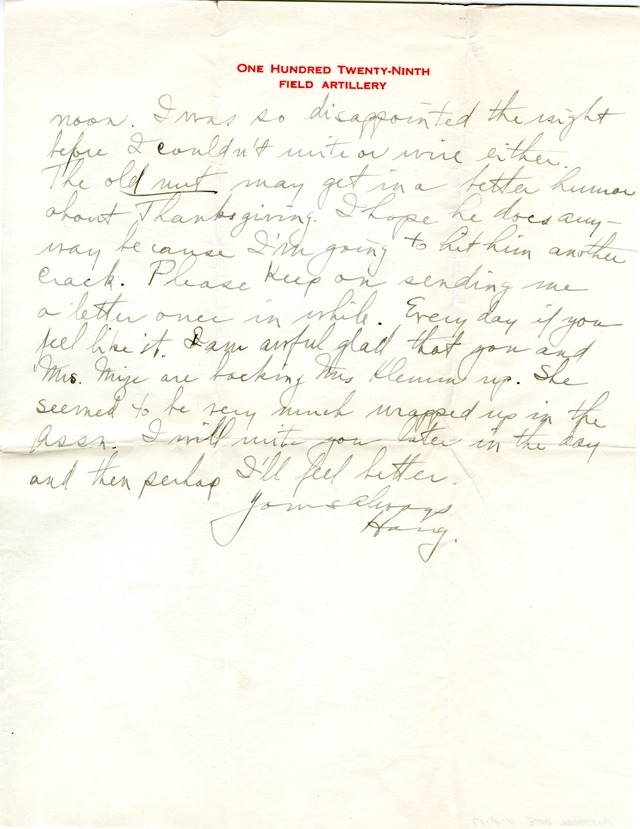 ONE HUNDRED TWENTY-NINTH
FIELD ARTILLERY
noon. I was so disappointed the night
before I couldn't write or wire either.
The old nut may get in a better humor
about Thanksgiving. I hope he does any-
way because I'm going to hit him another
crack. Please keep on sending me
a letter once in while. Every day if you
feel like it. I am awful glad that you and
Mrs. Mize are backing Mrs Klemm up. She
seemed to be very much wrapped up in the
Assn. I will write you later in the day
and then perhap I'll feel better.
Yours always
Harry.